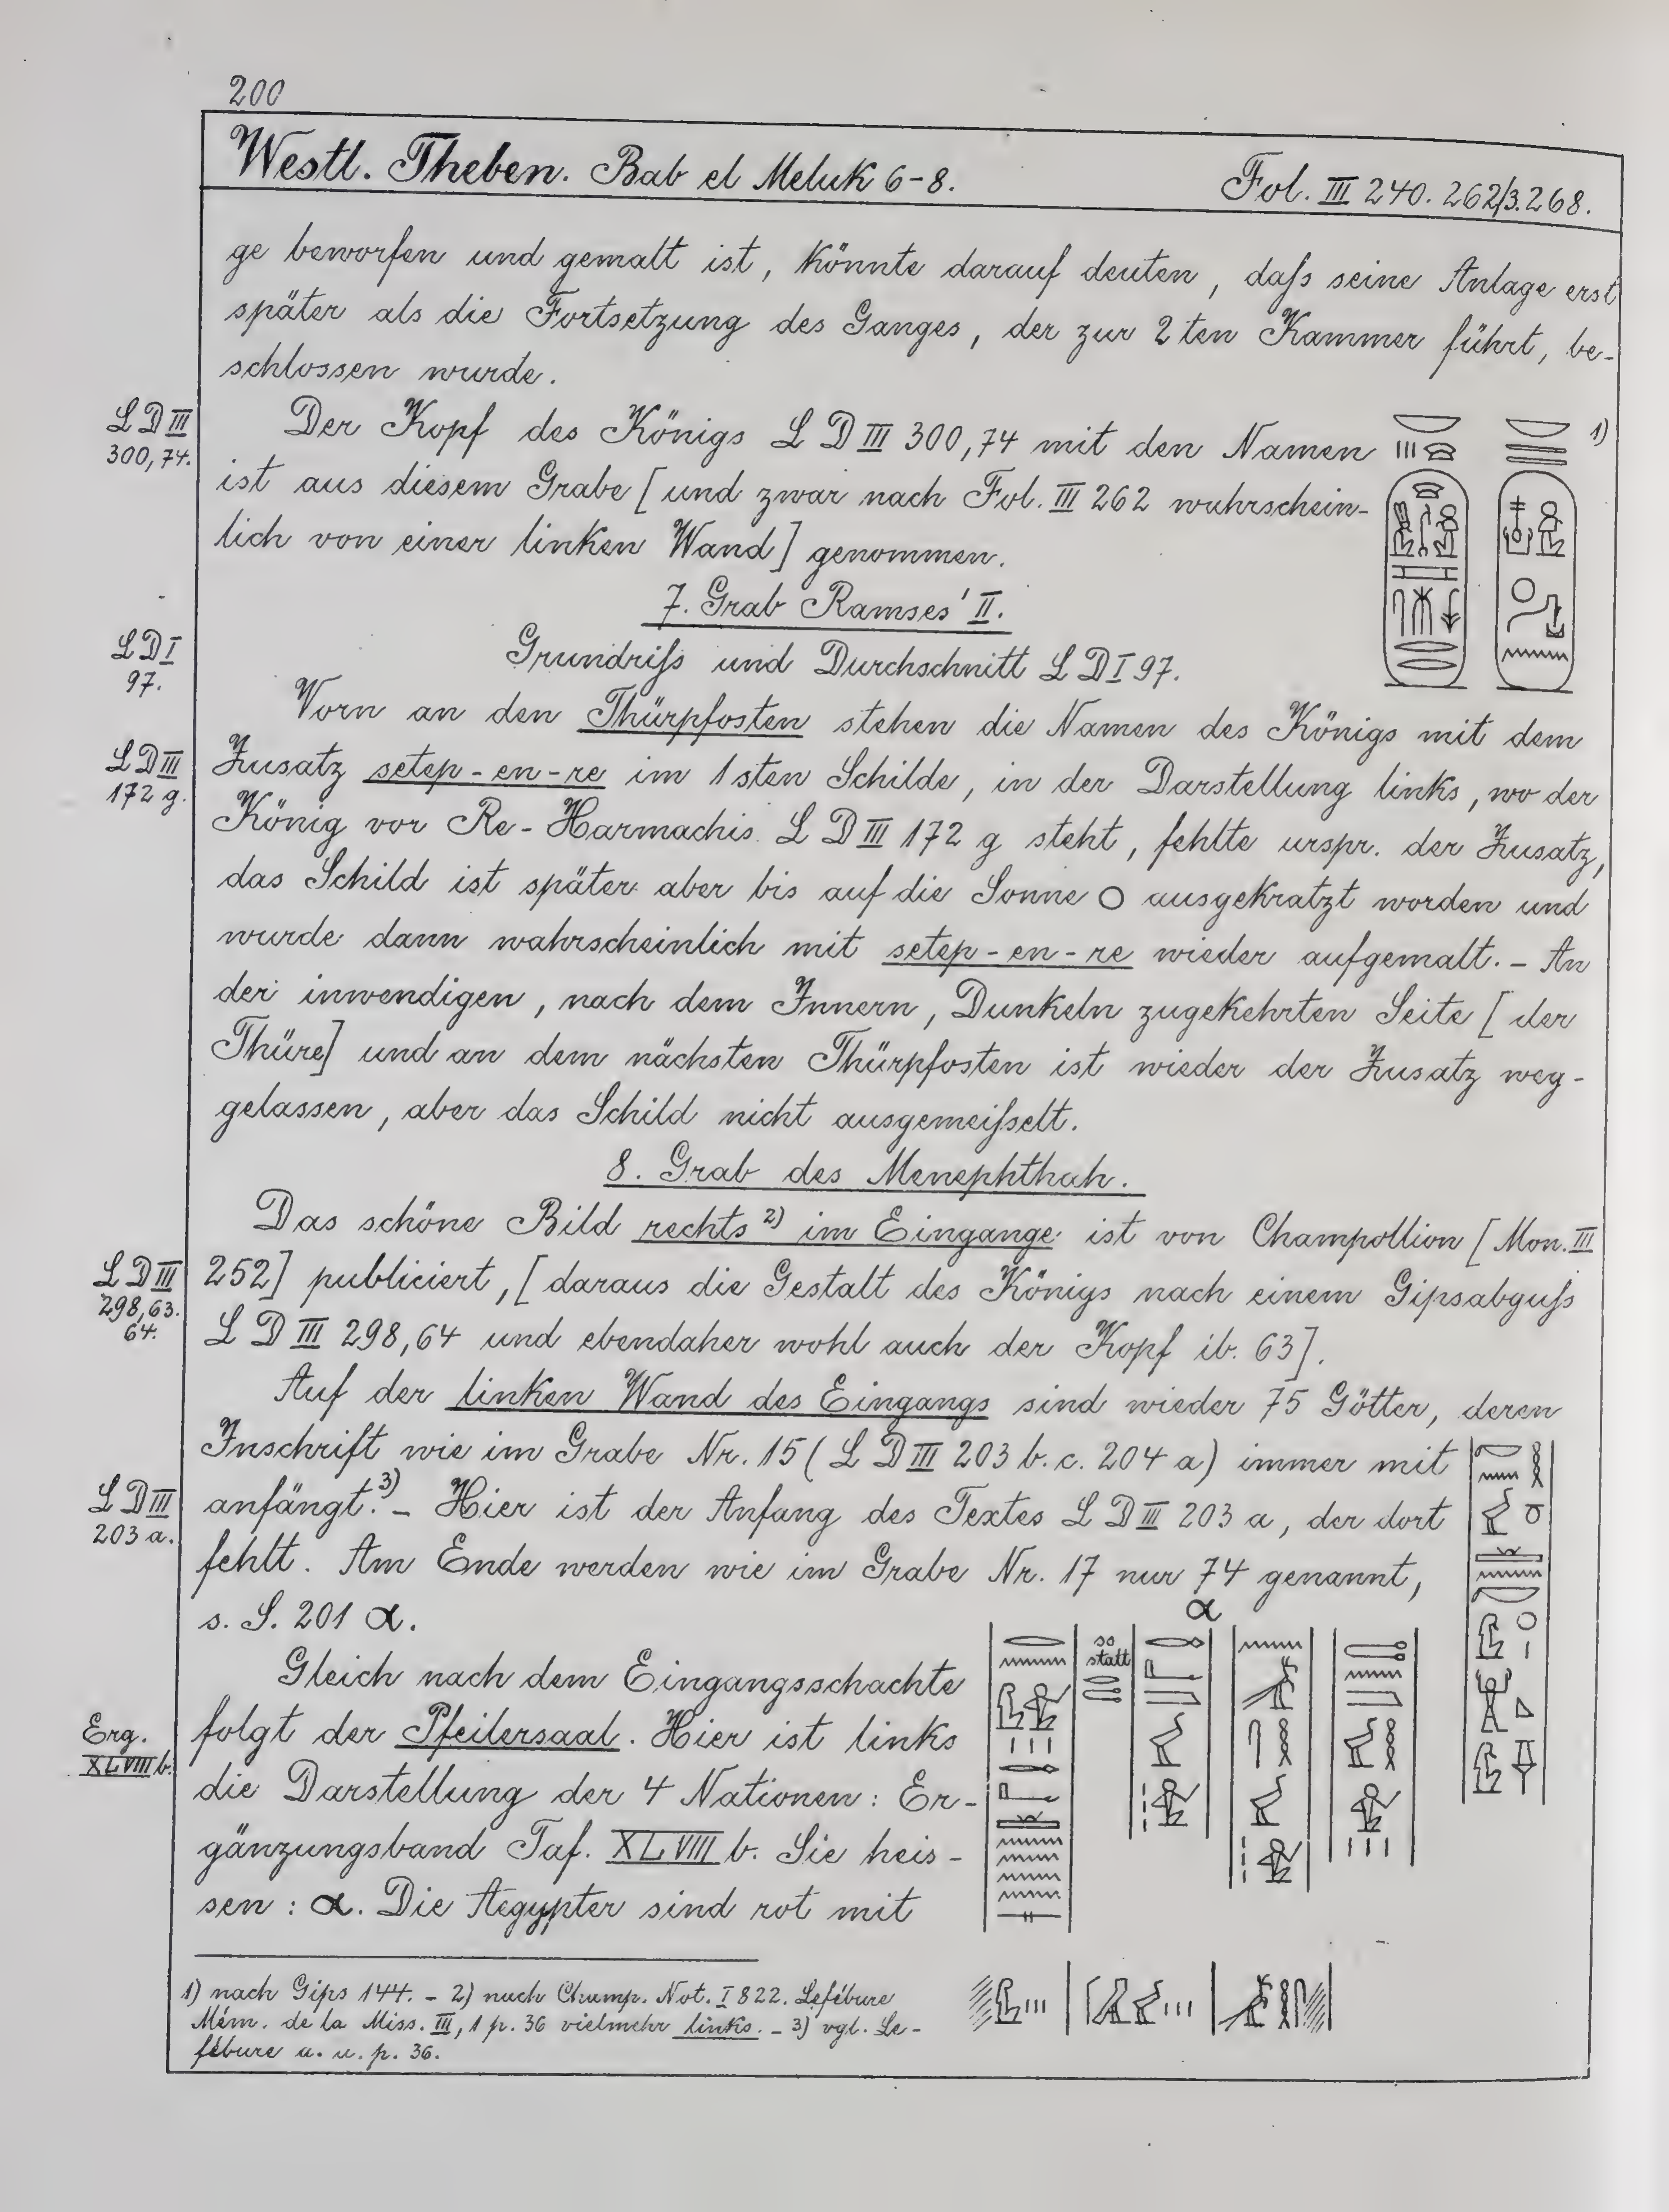 200
Westl. Theben. Bab el Meluk 6-8. Fol. III 240. 262/3. 268.
ge beworfen und gemalt ist, könnte darauf deuten, daſs seine Anlage erst
später als die Fortsetzung des Ganges, der zur 2ten Kammer führt, be-
schlossen wurde.
LD III
300,74.
Der Kopf des Königs LD III 300,74 mit den Namen 1)
ist aus diesem Grabe [und zwar nach Fol. III 262 wahrschein-
lich von einer linken Wand] genommen.
7. Grab Ramses' II.
LD I
97.
Grundriſs und Durchschnitt LD I 97.
Vorn an den Thürpfosten stehen die Namen des Königs mit dem
LD III
172 g.
Zusatz setep-en-re im 1sten Schilde, in der Darstellung links, wo der
König vor Re-Harmachis LD III 172 g steht, fehlte urspr. der Zusatz,
das Schild ist später aber bis auf die Sonne ausgekratzt worden und
wurde dann wahrscheinlich mit setep-en-re wieder aufgemalt. - An
der inwendigen, nach dem Innern, Dunkeln zugekehrten Seite [der
Thüre] und an dem nächsten Thürpfosten ist wieder der Zusatz weg-
gelassen, aber das Schild nicht ausgemeiſselt.
8. Grab des Menephthah.
Das schöne Bild rechts 2) im Eingange ist von Champollion [Mon. III
LD III
298,63.
64.
252] publiciert, [daraus die Gestalt des Königs nach einem Gipsabguſs
LD III 298,64 und ebendaher wohl auch der Kopf ib. 63].
Auf der linken Wand des Eingangs sind wieder 75 Götter, deren
Inschrift wie im Grabe Nr. 15 (LD III 203 b. c. 204 a) immer mit
LD III
203 a.
anfängt. 3) - Hier ist der Anfang des Textes LD III 203 a, der dort
fehlt. Am Ende werden wie im Grabe Nr. 17 nur 74 genannt,
s. S. 201 α.
α
so
statt
Gleich nach dem Eingangsschachte
Erg.
XLVIII b.
folgt der Pfeilersaal. Hier ist links
die Darstellung der 4 Nationen: Er-
gänzungsband Taf. XLVIII b. Sie heis-
sen: α. Die Aegypter sind rot mit
1) nach Gips 144. - 2) nach Champ. Not. I 822. Lefébure
Mém. de la Miss. III, 1 p. 36 vielmehr links. - 3) vgl. Le-
fébure a. a. p. 36.